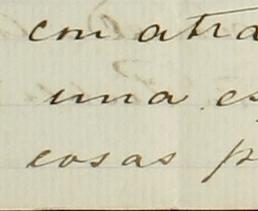 con atra
una es
cosas p